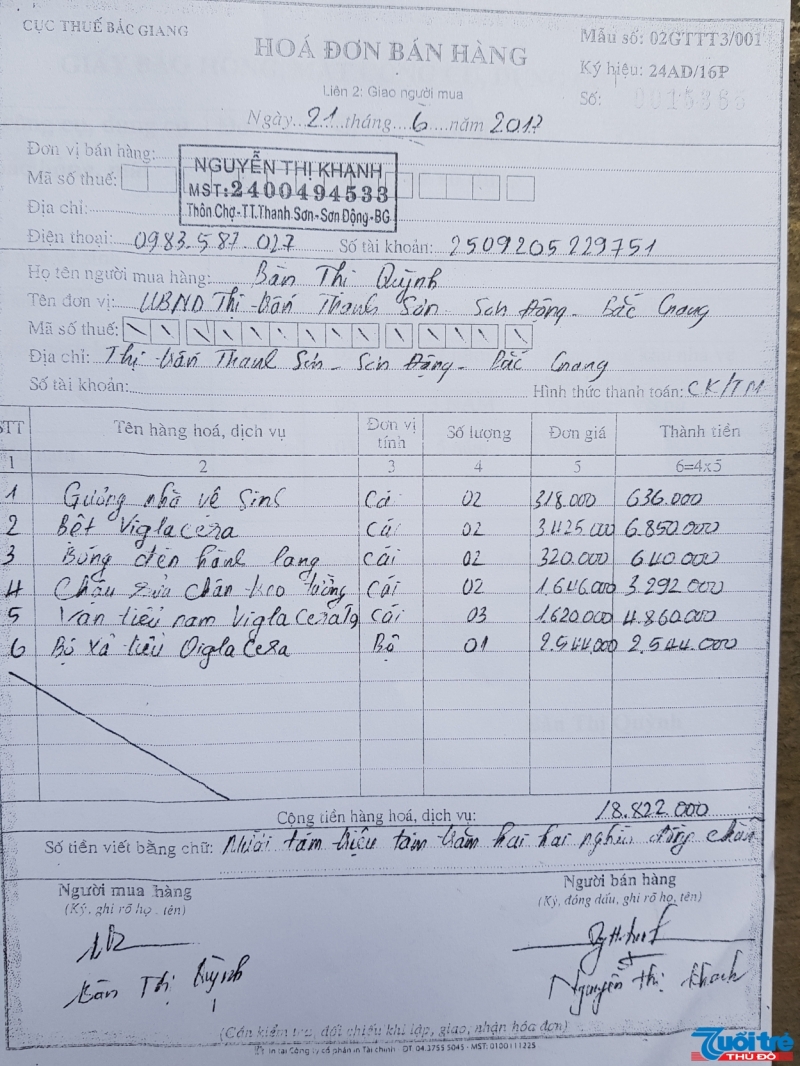 CỤC THUẾ BẮC GIANG
HOÁ ĐƠN BÁN HÀNG
Mẫu số: 02GTTT3/001
Ký hiệu: 24AD/16P
Liên 2: Giao người mua
Số: 0015365
Ngày 21 tháng 6 năm 2017
Đơn vị bán hàng:
NGUYỄN THỊ KHANH
Mã số thuế: MST:2400494533
Địa chỉ: Thôn Chợ-TT.Thanh Sơn-Sơn Động-BG
Điện thoại: 0983.587.027 Số tài khoản: 2509205229751
Họ tên người mua hàng: Bàn Thị Quỳnh
Tên đơn vị: UBND Thị trấn Thanh Sơn - Sơn Động - Bắc Giang
Mã số thuế:
Địa chỉ: Thị trấn Thanh Sơn - Sơn Động - Bắc Giang
Số tài khoản: Hình thức thanh toán: CK/TM
STT Tên hàng hoá, dịch vụ Đơn vị tính Số lượng Đơn giá Thành tiền
1 2 3 4 5 6=4x5
1 Gương nhà vệ sinh Cái 02 318.000 636.000
2 Bệt Viglacera Cái 02 3.425.000 6.850.000
3 Bóng đèn hành lang Cái 02 320.000 640.000
4 Chậu rửa chân treo tường Cái 02 1.646.000 3.292.000
5 Van tiểu nam Viglacera Cái 03 1.620.000 4.860.000
6 Bộ xả tiểu Viglacera Bộ 01 2.544.000 2.544.000
Cộng tiền hàng hoá, dịch vụ: 18.822.000
Số tiền viết bằng chữ: Mười tám triệu tám trăm hai hai nghìn đồng chẵn
Người mua hàng Người bán hàng
(Ký, ghi rõ họ, tên) (Ký, đóng dấu, ghi rõ họ, tên)
Bàn Thị Quỳnh Nguyễn Thị Khanh
(Cần kiểm tra, đối chiếu khi lập, giao, nhận hóa đơn)
In tại Công ty cổ phần in Tài chính ĐT: 04.3755 5045 - MST: 0100111225
Tuổi trẻ
THỦ ĐÔ